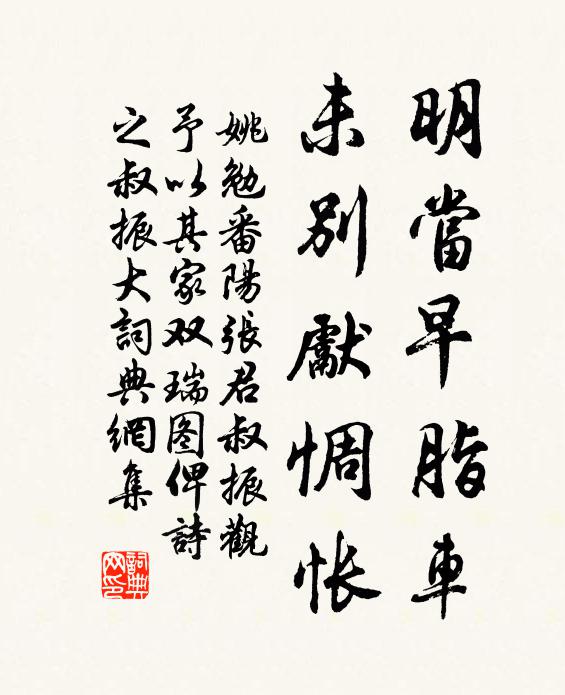 明當早脂車
未別獻惆悵
姚勉番陽張君叔振觀
予以其家双瑞图俾詩
之叔振大詞典網集
詞典
网印